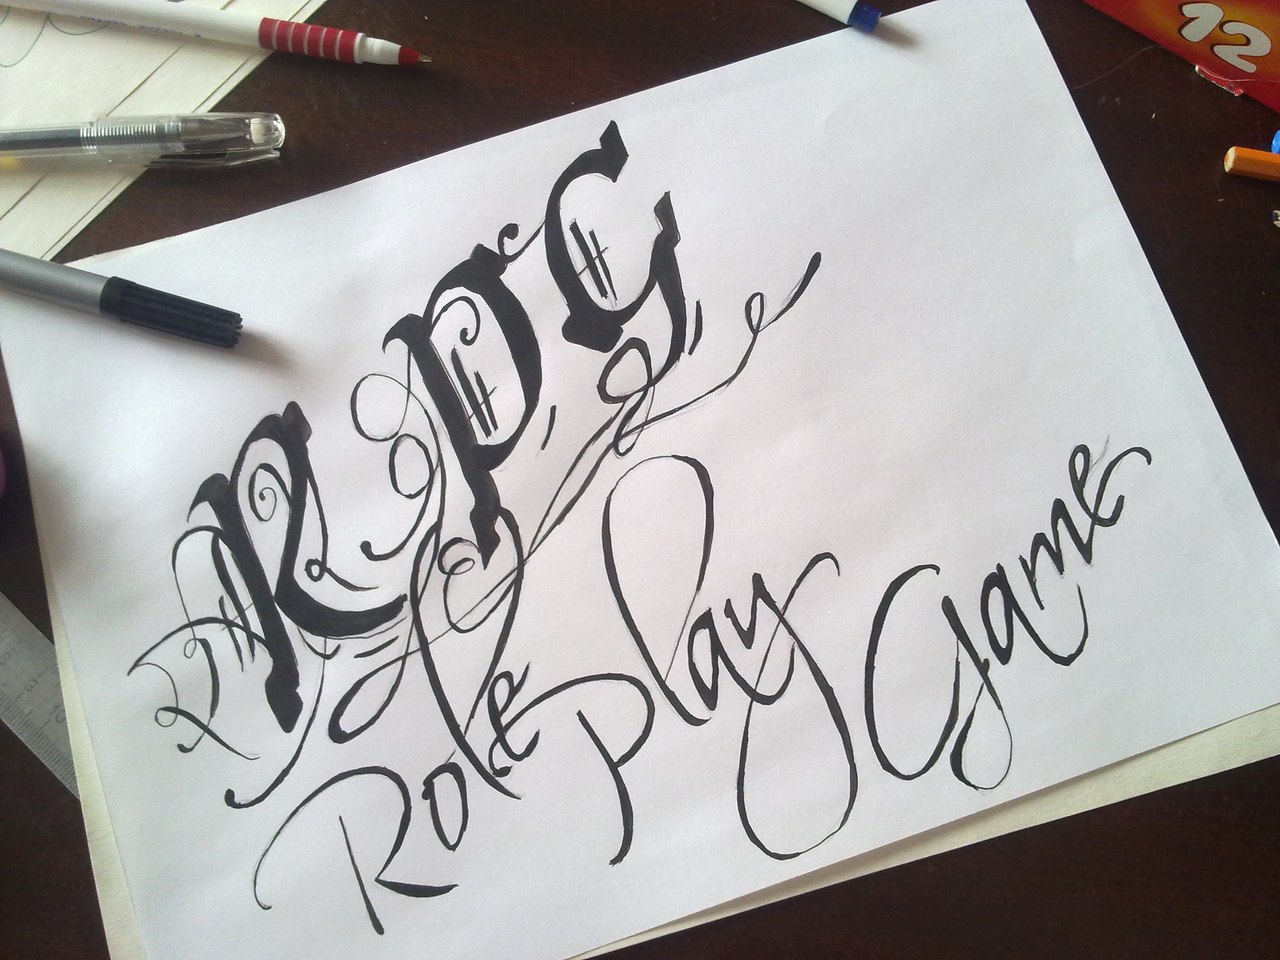 RPG
Role Play Game
12